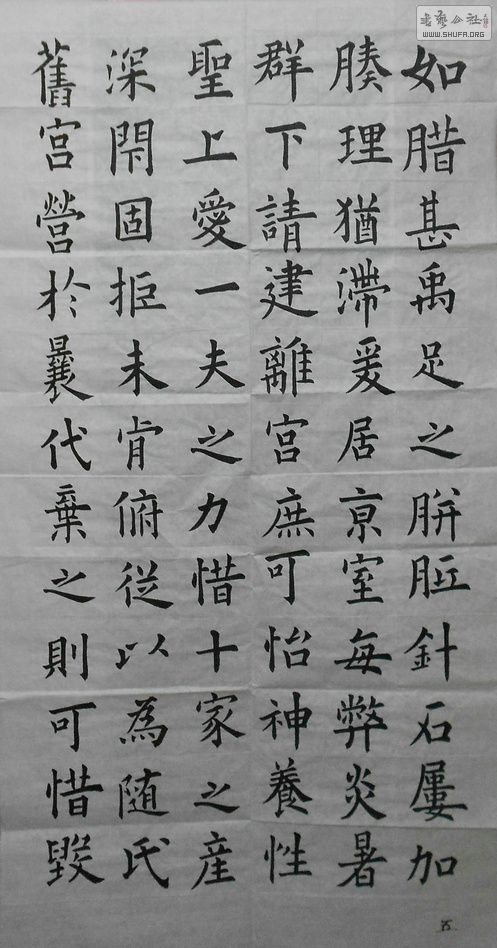 如腊甚禹足之胼胝針石屢加
腠理猶滯爰居京室每弊炎暑
群下請建離宮庶可怡神養性
聖上愛一夫之力惜十家之産
深閇固拒未肯俯從以為随氏
舊宮營於曩代棄之則可惜毀
五
書藝公社
WWW.SHUFA.ORG